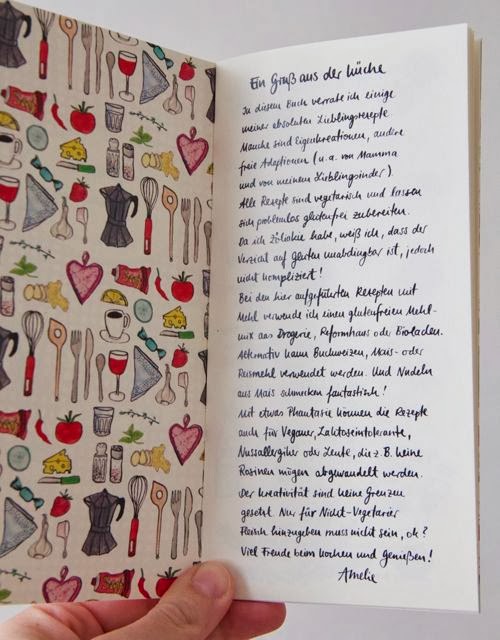 Ein Gruß aus der Küche
In diesem Buch verrate ich einige
meiner absoluten Lieblingsrezepte.
Manche sind Eigenkreationen, andere
freie Adaptionen (u.a. von Mamma
und von meinem Lieblingsinder).
Alle Rezepte sind vegetarisch und lassen
sich problemlos glutenfrei zubereiten.
Da ich Zöliakie habe, weiß ich, dass der
Verzicht auf Gluten unabdingbar ist, jedoch
nicht kompliziert!
Bei den hier aufgeführten Rezepten mit
Mehl verwende ich einen glutenfreien Mehl-
mix aus Drogerie, Reformhaus oder Bioladen.
Alternativ kann Buchweizen, Mais- oder
Reismehl verwendet werden. Und Nudeln
aus Mais schmecken fantastisch!
Mit etwas Phantasie können die Rezepte
auch für Veganer, Laktoseintolerante,
Nussallergiker oder Leute, die z.B. keine
Rosinen mögen abgewandelt werden.
Der Kreativität sind keine Grenzen
gesetzt. Nur für Nicht-Vegetarier
Fleisch hinzugeben muss nicht sein, ok?
Viel Freude beim Kochen und Genießen!
Amelie